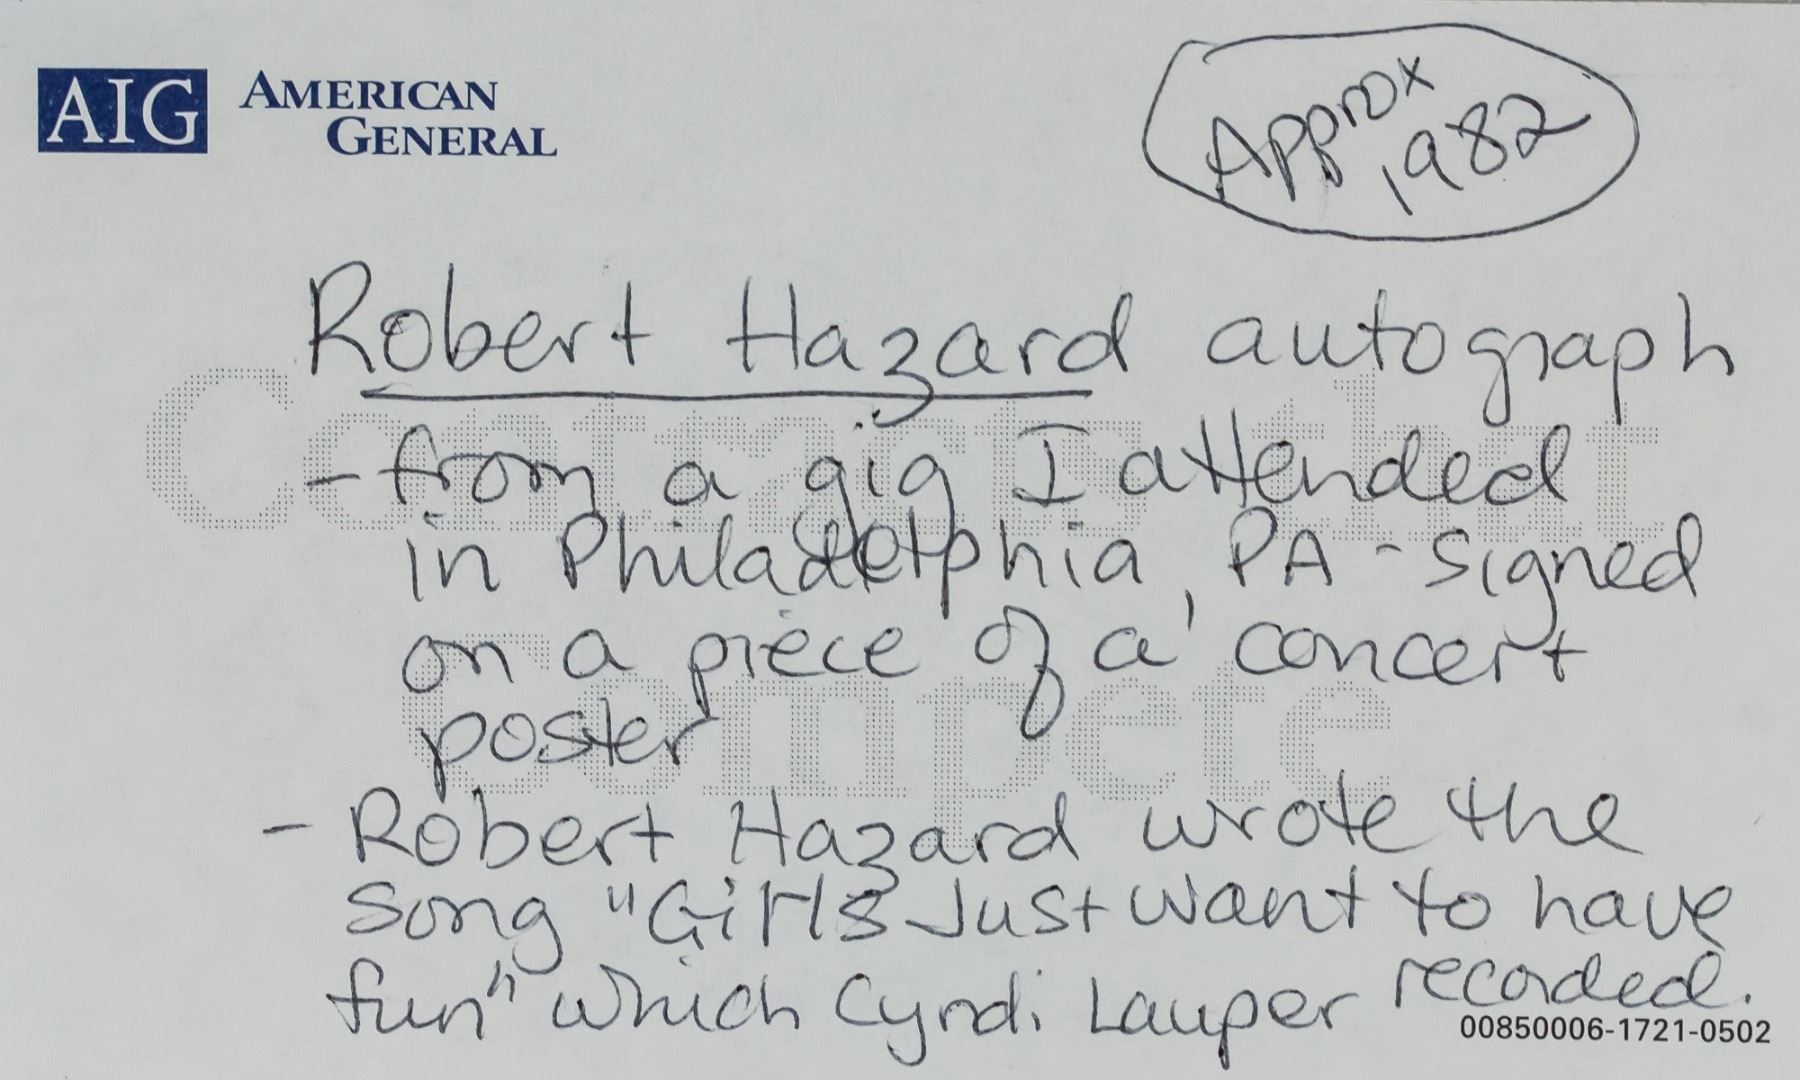 AIG AMERICAN
GENERAL
Approx
1982
Robert Hazard autograph
- from a gig I attended
in Philadelphia, PA - signed
on a piece of a concert
poster
- Robert Hazard wrote the
song "Girls Just want to have
fun" which Cyndi Lauper recorded.
Contracts that
compete
00850006-1721-0502